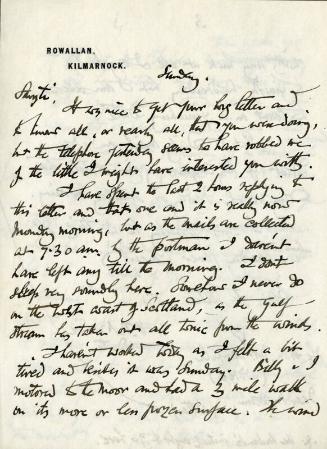 ROWALLAN,
KILMARNOCK.
Sunday.
It was nice to get your long letter and
to know all, or nearly all, that you were doing,
but the telephone yesterday seems to have robbed me
of the little I might have interested you with.
I have spent the last 2 hours replying to
this letter and that one and it is really now
Monday morning, but as the mails are collected
at 7.30 am by the postman I daren't
have left any till the morning. I don't
sleep very soundly here. Somehow I never do
on the West coast of Scotland, as the gulf
stream has taken out all tonic from the winds.
I haven't worked today as I felt a bit
tired and besides it was Sunday. Billy & I
motored to the Moor and had a 3 mile walk
on its more or less frozen surface. The wind